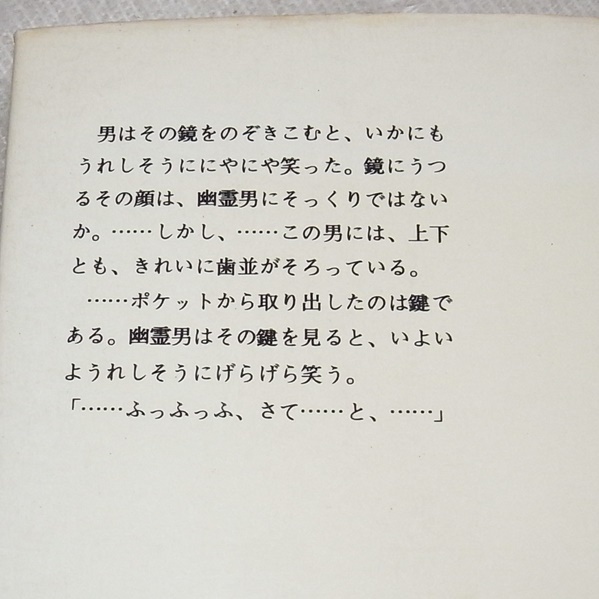 男はその鏡をのぞきこむと、いかにも
うれしそうににやにや笑った。鏡にうつ
るその顔は、幽霊男にそっくりではない
か。……しかし、……この男には、上下
とも、きれいに歯並がそろっている。
……ポケットから取り出したのは鍵で
ある。幽霊男はその鍵を見ると、いよい
ようれしそうにげらげら笑う。
「……ふっふっふ、さて……と、……」